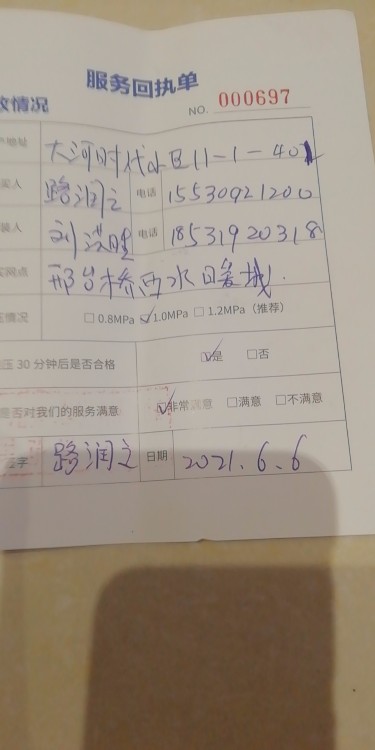 服务回执单
收情况
NO. 000697
地址 大河时代小区11-1-401
买人 路润之 电话 15530921200
装人 刘洪胜 电话 18531920318
买网点 邢台桥西水暖城.
压情况 □0.8MPa ☑1.0MPa □1.2MPa（推荐）
压30分钟后是否合格 ☑是 □否
是否对我们的服务满意 ☑非常满意 □满意 □不满意
签字 路润之 日期 2021.6.6